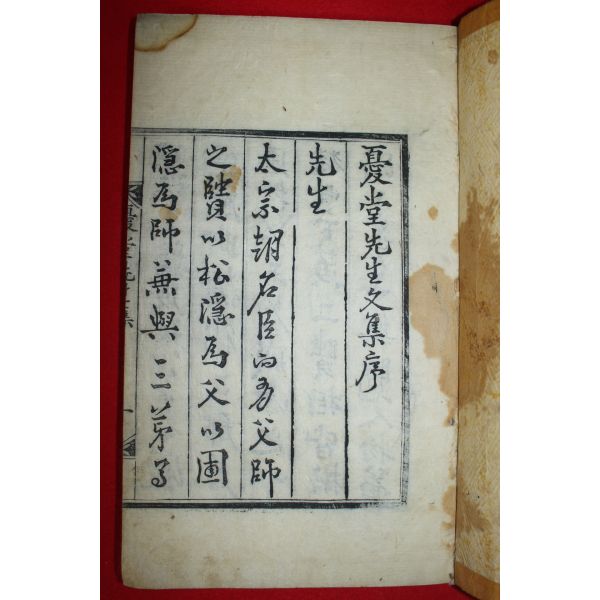 憂堂先生文集序
先生
太宗朝名臣而為父師
之賢以松隱為父以圃
隱為師兼與三弟
憂堂先生文集
一